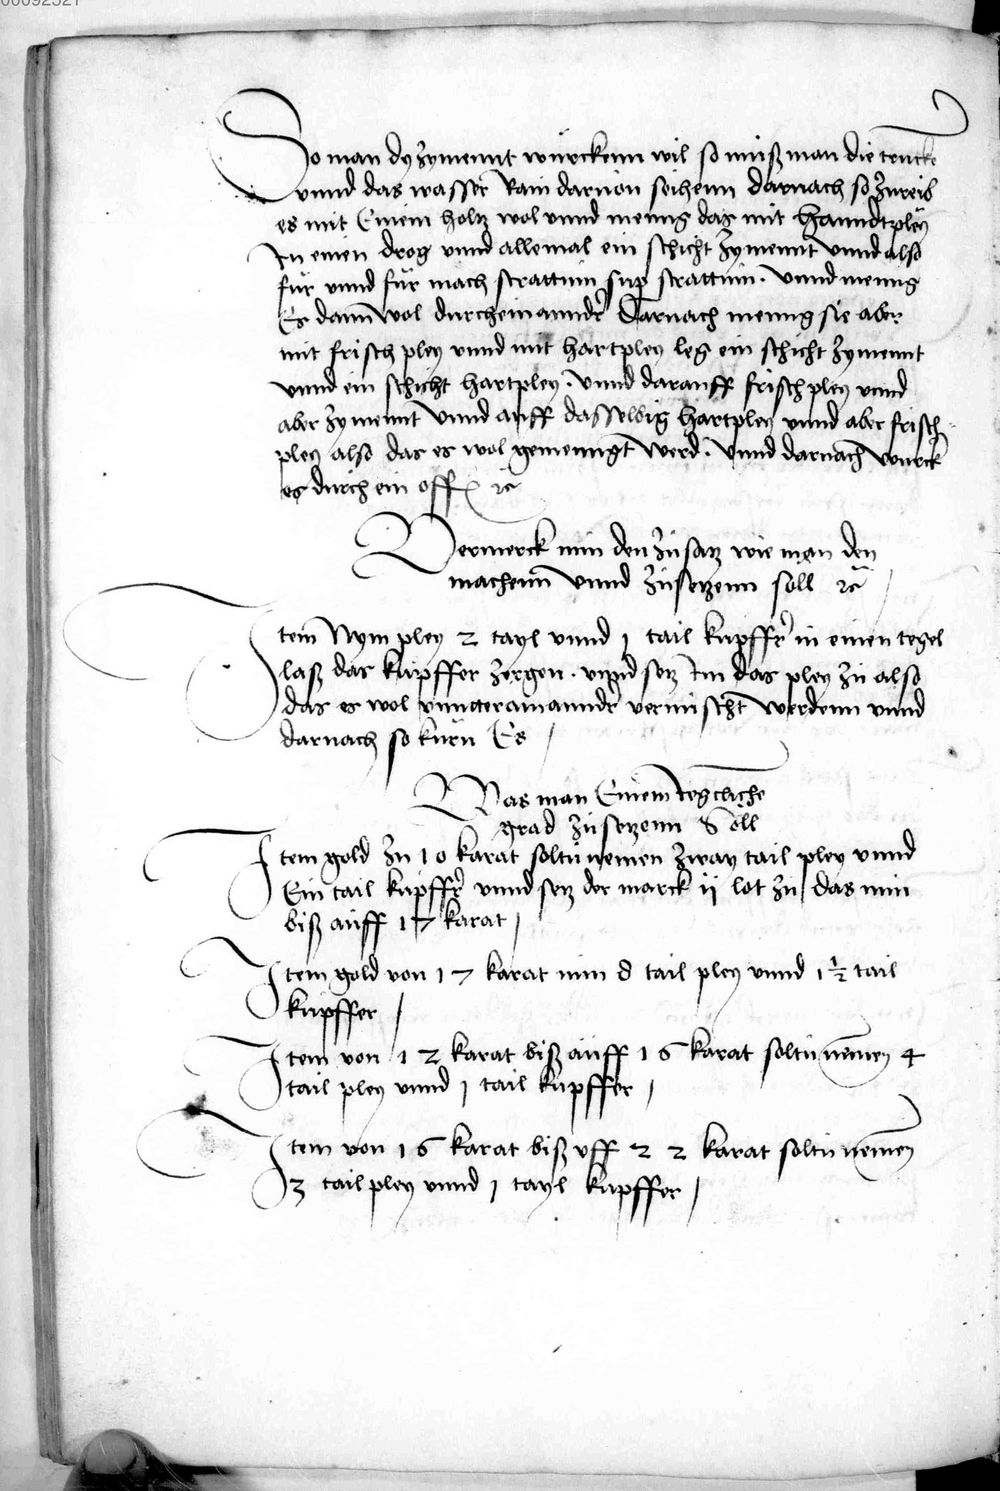 00092521
So man dy zymennt würckenn wil so muß man die truck
vnnd das wasser Rain daruon seihenn darnach so zureib
es mit Einem holtz wol vnnd meng das mit hanndtpley
In einen drog vnnd allemal ein schicht zymennt vnnd also
für vnnd für nach strattum sup strattum. vnnd meng
Es dann wol durcheinannder Darnach meng sie aber
mit frisch pley vnnd mit hartpley leg ein schicht zymennt
vnnd ein schicht hartpley. vnnd darauff frischpley vnnd
aber zymennt vnnd auff dasselbig hartpley vnnd aber frisch
pley also das es wol gemenngt werd. vnnd darnach würck
es durch ein offen ꝛc
Vermerck nun den zusatz wie man den
machenn vnnd zusetzenn soll ꝛc
Item Nym pley 2 tayl vnnd 1 tail kupffer in einen tegel
laß das kupffer zergen. vnnd setz Im das pley zu also
das es wol vnntteramannder vermischt werdenn vnnd
darnach so kürn Es
Was man Einem regcliche
grad zusetzenn Soll
Item gold zu 10 karat soltu nemen zway tail pley vnnd
Ein tail kupffer vnnd setz der marck ij lot zu das nun
biß auff 17 karat
Item gold von 17 karat nim 8 tail pley vnnd 1½ tail
kupffer
Item von 12 karat biß auff 16 karat soltu nemen 4
tail pley vnnd 1 tail kupffer
Item von 16 karat biß vff 22 karat soltu nemen
3 tail pley vnnd 1 tayl kupffer